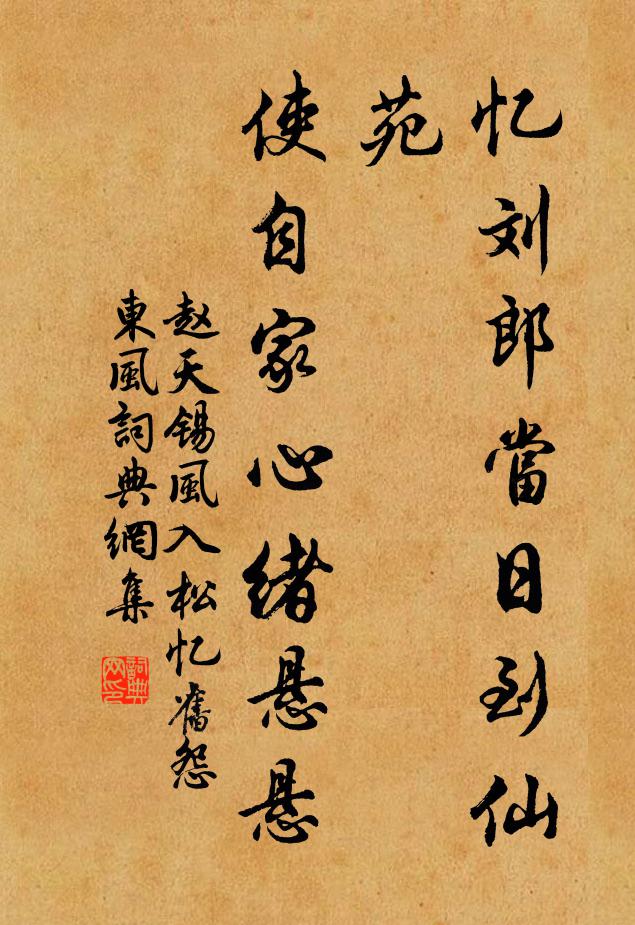 忆刘郎當日到仙
苑
使自家心绪悬悬
赵天锡風入松忆舊怨
東風詞典網集
詞典
网印